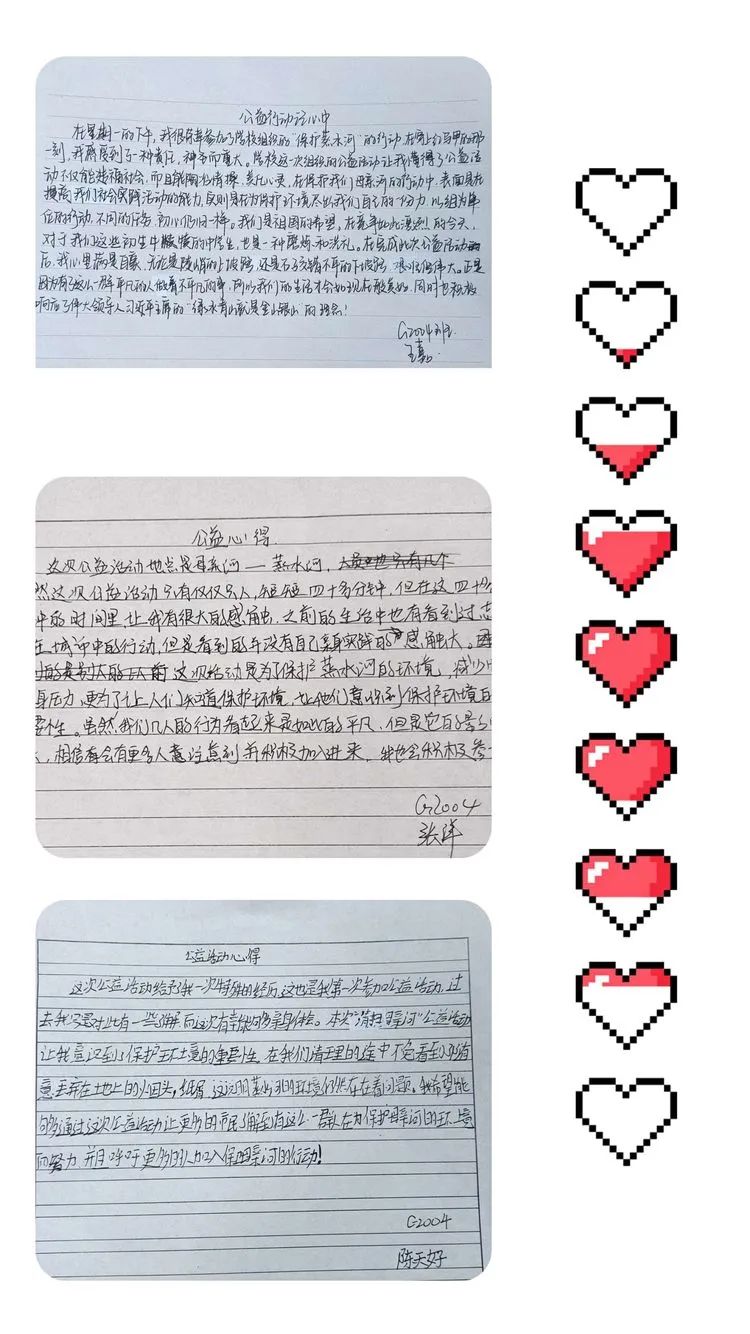 公益行动记心中
在星期一的下午,我很荣幸参加了学校组织的“保护蒸水河”的行动,在穿上红马甲的那
一刻,我感受到了一种责任,神圣而重大。学校这一次组织的公益活动让我懂得了公益活
动不仅能造福社会,而且能陶冶情操,美化心灵,在保护我们母亲河的行动中,表面是在
提高我们社会实践活动的能力,实则是在为保护环境尽出我们自己的一份力,以组为单
位的行动,不同的任务,初心仍旧一样。我们是祖国的希望,在竞争如此激烈的今天,
对于我们这些初生牛犊的中学生,也是一种磨炼和洗礼。在完成此次公益活动
后,我心里满是自豪,无论是陡峭的上坡路,还是石子交错不平的下坡路,
因为有了这么一群平凡的人做着不平凡的事,所以我们的生活才会如现在般美好,同时也积极
响应了伟大领导人习近平主席的“绿水青山就是金山银山”的理念!
G2004班
王嘉
公益心得
这次公益活动地点是母亲河—蒸水河,
然这次公益活动只有仅仅几人,短短四十多分钟,但在这四十多
中的时间里,让我有很大的感触,之前的生活中也有看到过志
在城市中的行动,但是看到的并没有自己亲身实践的感触大。
这次活动是为了保护蒸水河的环境,减少
身压力,更为了让人们知道保护环境,让他们意识到保护环境的
要性。虽然我们几人的行为看起来是如此的平凡,但是它的
,相信会有更多人意识到并积极加入进来,我也会积极参
G2004
张洋
公益活动心得
这次公益活动给予我一次特殊的经历,这也是我第一次参加公益活动,过
去我只是对此有一些了解,而这次有幸能够亲身体验。本次“清扫母亲河”公益活动
让我意识到了保护环境的重要性,在我们清理的途中不免看到随
意丢弃在土地上的烟头,纸屑,这说明蒸水河的环境仍然存在着问题。我希望能
够通过这次公益活动让更多的市民了解到有这么一群人在为保护母亲河的环境
而努力,并且呼吁更多的人加入保护母亲河的行动!
G2004
陈天好